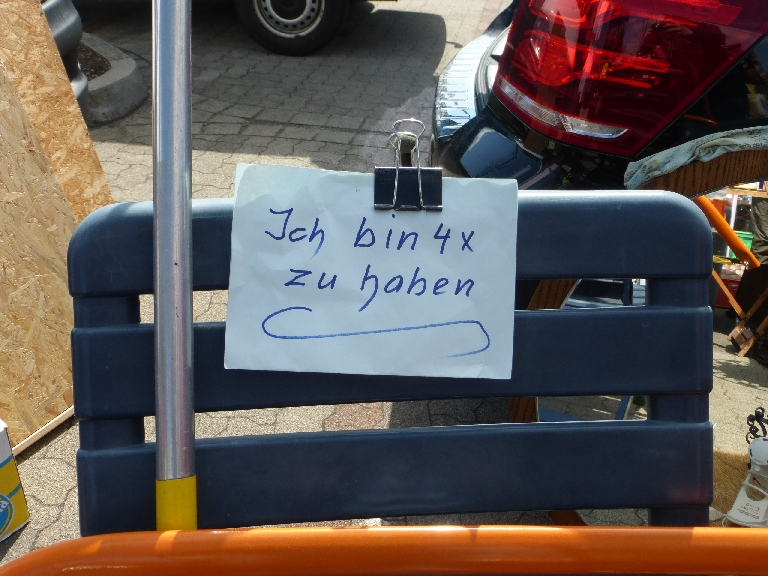 Ich bin 4x
zu haben